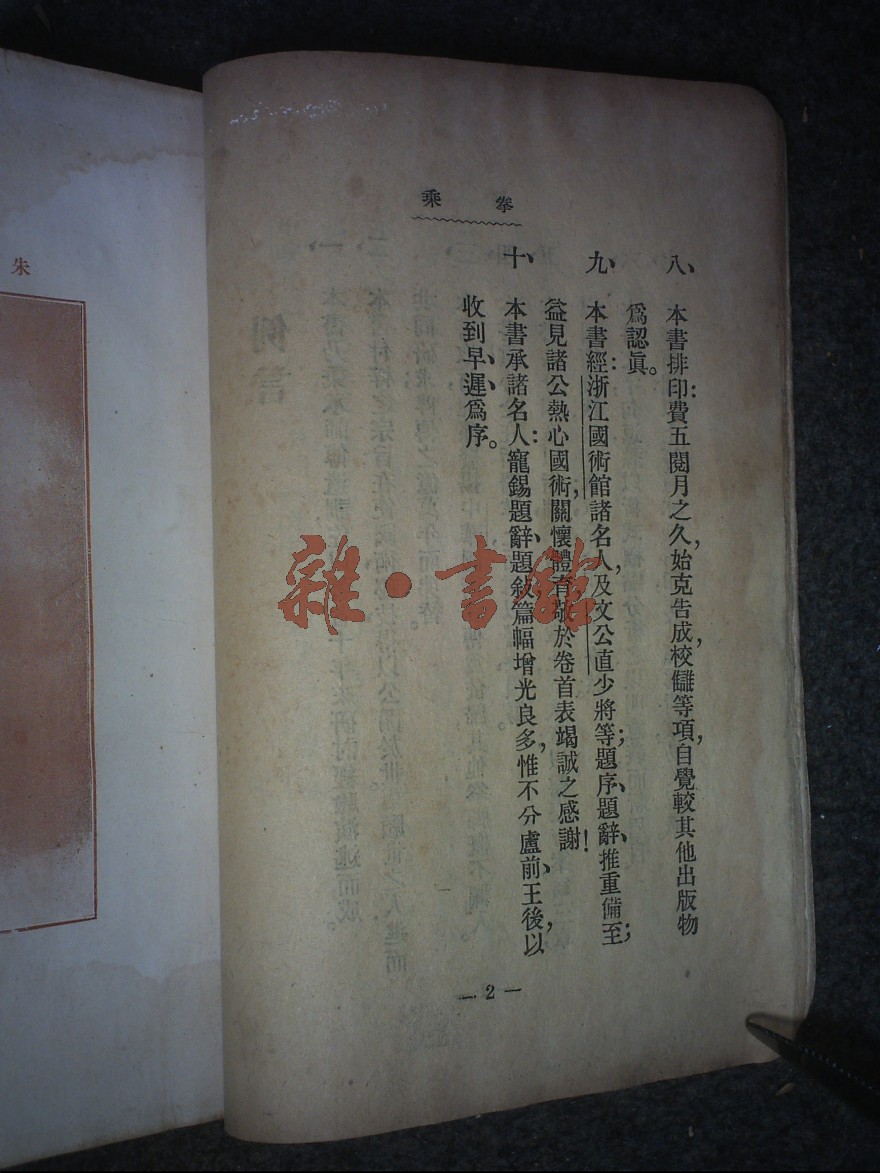 拳乘
八、本書排印費：五閱月之久，始克告成，校讎等項，自覺較其他出版物
爲認眞。
九、本書經：浙江國術館諸名人，及文公直少將等題序、題辭、推重備至；
益見諸公熱心國術，關懷體育，敬於卷首表竭誠之感謝！
十、本書承諸名人：寵錫題辭、題敍、篇幅增光良多，惟不分盧前、王後，以
收到早、遲、爲序。
— 2 —
朱
雜·書館